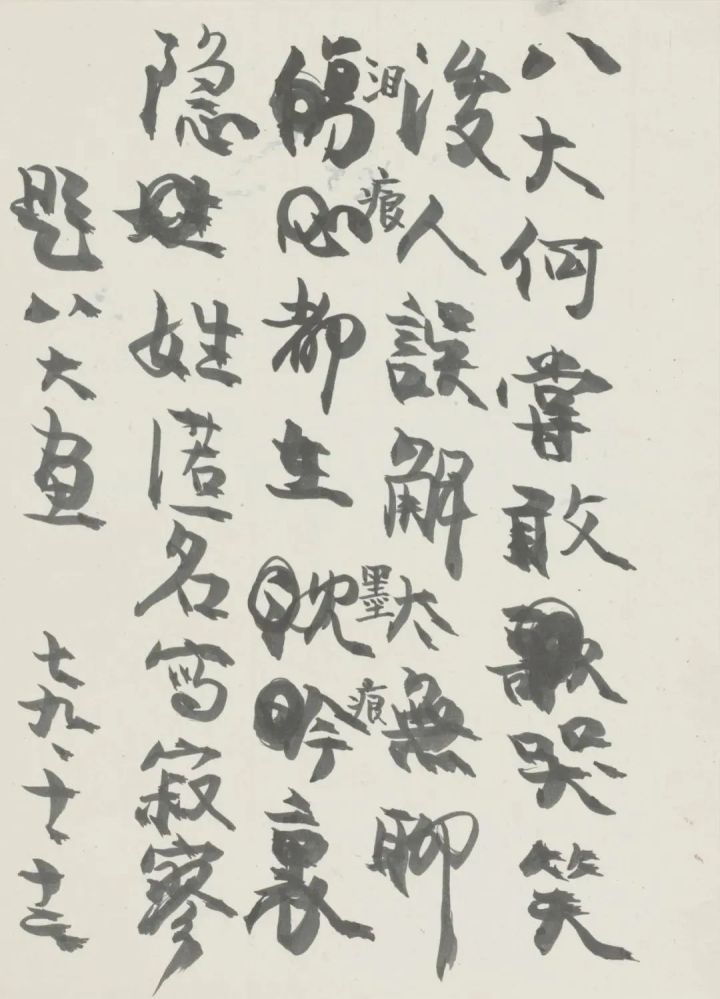 八大何嘗敢歌哭笑
後人誤解太無聊
泪痕 墨痕
傷心都在沈吟裏
隐姓匿名写寂寥
题八大画 七九、十、十二